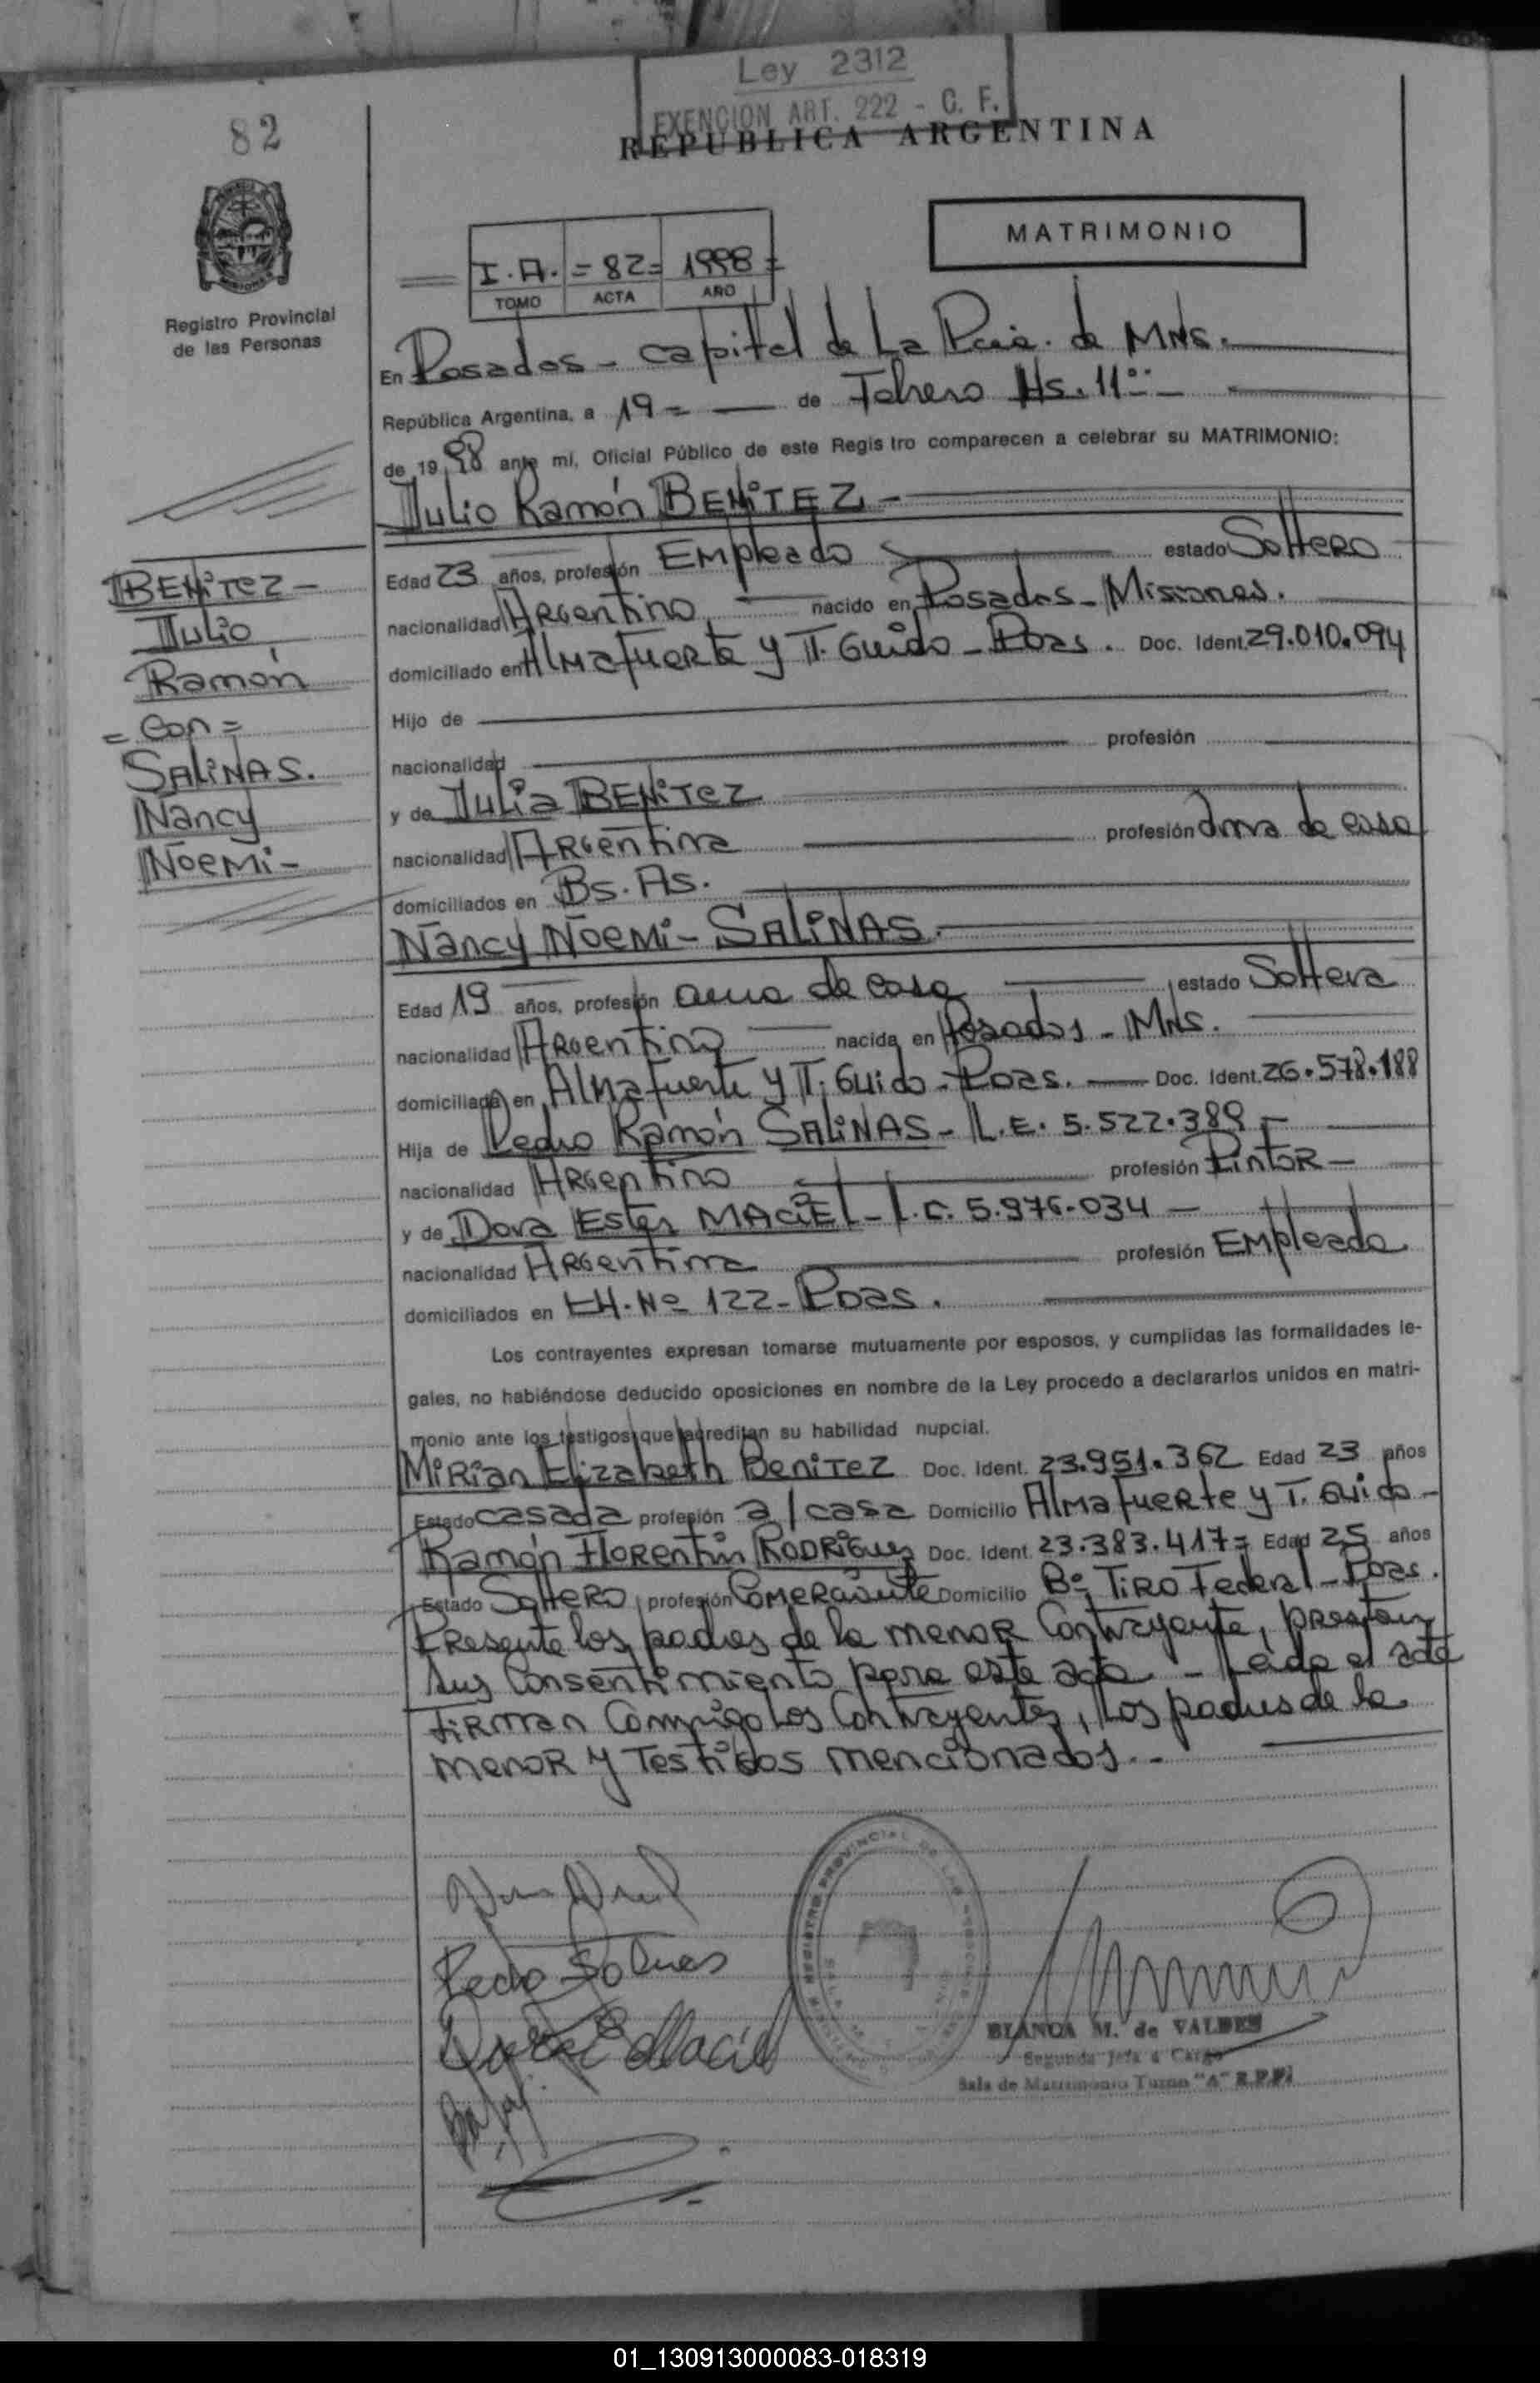 Ley 2312
EXENCION ART. 222 - C. F.
REPUBLICA ARGENTINA
82
MATRIMONIO
I. A. = 82 = 1998 =
TOMO ACTA AÑO
Registro Provincial
de las Personas
En Posadas - capital de La Pcia. de MNS.
República Argentina, a 19 = de Febrero Hs. 11
de 1998 ante mí, Oficial Público de este Registro comparecen a celebrar su MATRIMONIO:
Julio Ramón BENITEZ -
Edad 23 años, profesión Empleado estado Soltero
nacionalidad Argentino nacido en Posadas - Misiones.
domiciliado en Almafuerte y T. Guido - Pdas. Doc. Ident. 29.010.094
Hijo de
nacionalidad profesión
y de Julia BENITEZ
nacionalidad Argentina profesión ama de casa
domiciliados en Bs. As.
BENITEZ -
Julio
Ramón
= con =
SALINAS.
Nancy
Noemi -
Nancy Noemi - SALINAS.
Edad 19 años, profesión ama de casa estado Soltera
nacionalidad Argentina nacida en Posadas - MNS.
domiciliada en Almafuerte y T. Guido - Pdas. Doc. Ident. 26.578.188
Hija de Pedro Ramón SALINAS - L.E. 5.522.389 -
nacionalidad Argentino profesión Pintor -
y de Dora Ester MACIEL - L.C. 5.976.034 -
nacionalidad Argentina profesión Empleada
domiciliados en CH. Nº 122 - Pdas.
Los contrayentes expresan tomarse mutuamente por esposos, y cumplidas las formalidades le-
gales, no habiéndose deducido oposiciones en nombre de la Ley procedo a declararlos unidos en matri-
monio ante los testigos que acreditan su habilidad nupcial.
Mirian Elizabeth Benitez Doc. Ident. 23.951.362 Edad 23 años
Estado casada profesión a/casa Domicilio Almafuerte y T. Guido -
Ramón Florentin Rodriguez Doc. Ident. 23.383.417 = Edad 25 años
Estado Soltero profesión Comerciante Domicilio Bº Tiro Federal - Pdas.
Presente los padres de la menor Contrayente, prestan
sus Consentimiento para este acto. - Leída el acta
firman Conmigo Los Contrayentes, Los padres de la
menor y Testigos mencionados. -
Pedro Salinas
Dora E Maciel
REGISTRO PROVINCIAL DE LAS PERSONAS
BLANCA M. de VALDES
Segunda Jefa a Cargo
Sala de Matrimonio Turno "A" R.P.P.
01_130913000083-018319